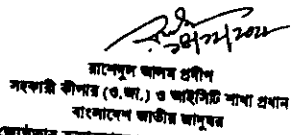 ২৪/১১/২০২২
রাশেদুল আলম প্রদীপ
সহকারী কীপার (ও.আ.) ও আইসিটি শাখা প্রধান
বাংলাদেশ জাতীয় জাদুঘর